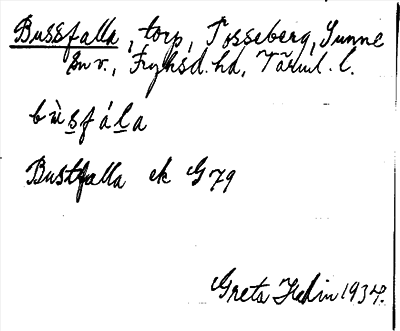 Bussfalla, torp, Tosseberg, Sunne
sn v., Fryksd. hd, Värml. l.
bùsfála
Bustfalla ek G 79
Greta Hedin 1937.